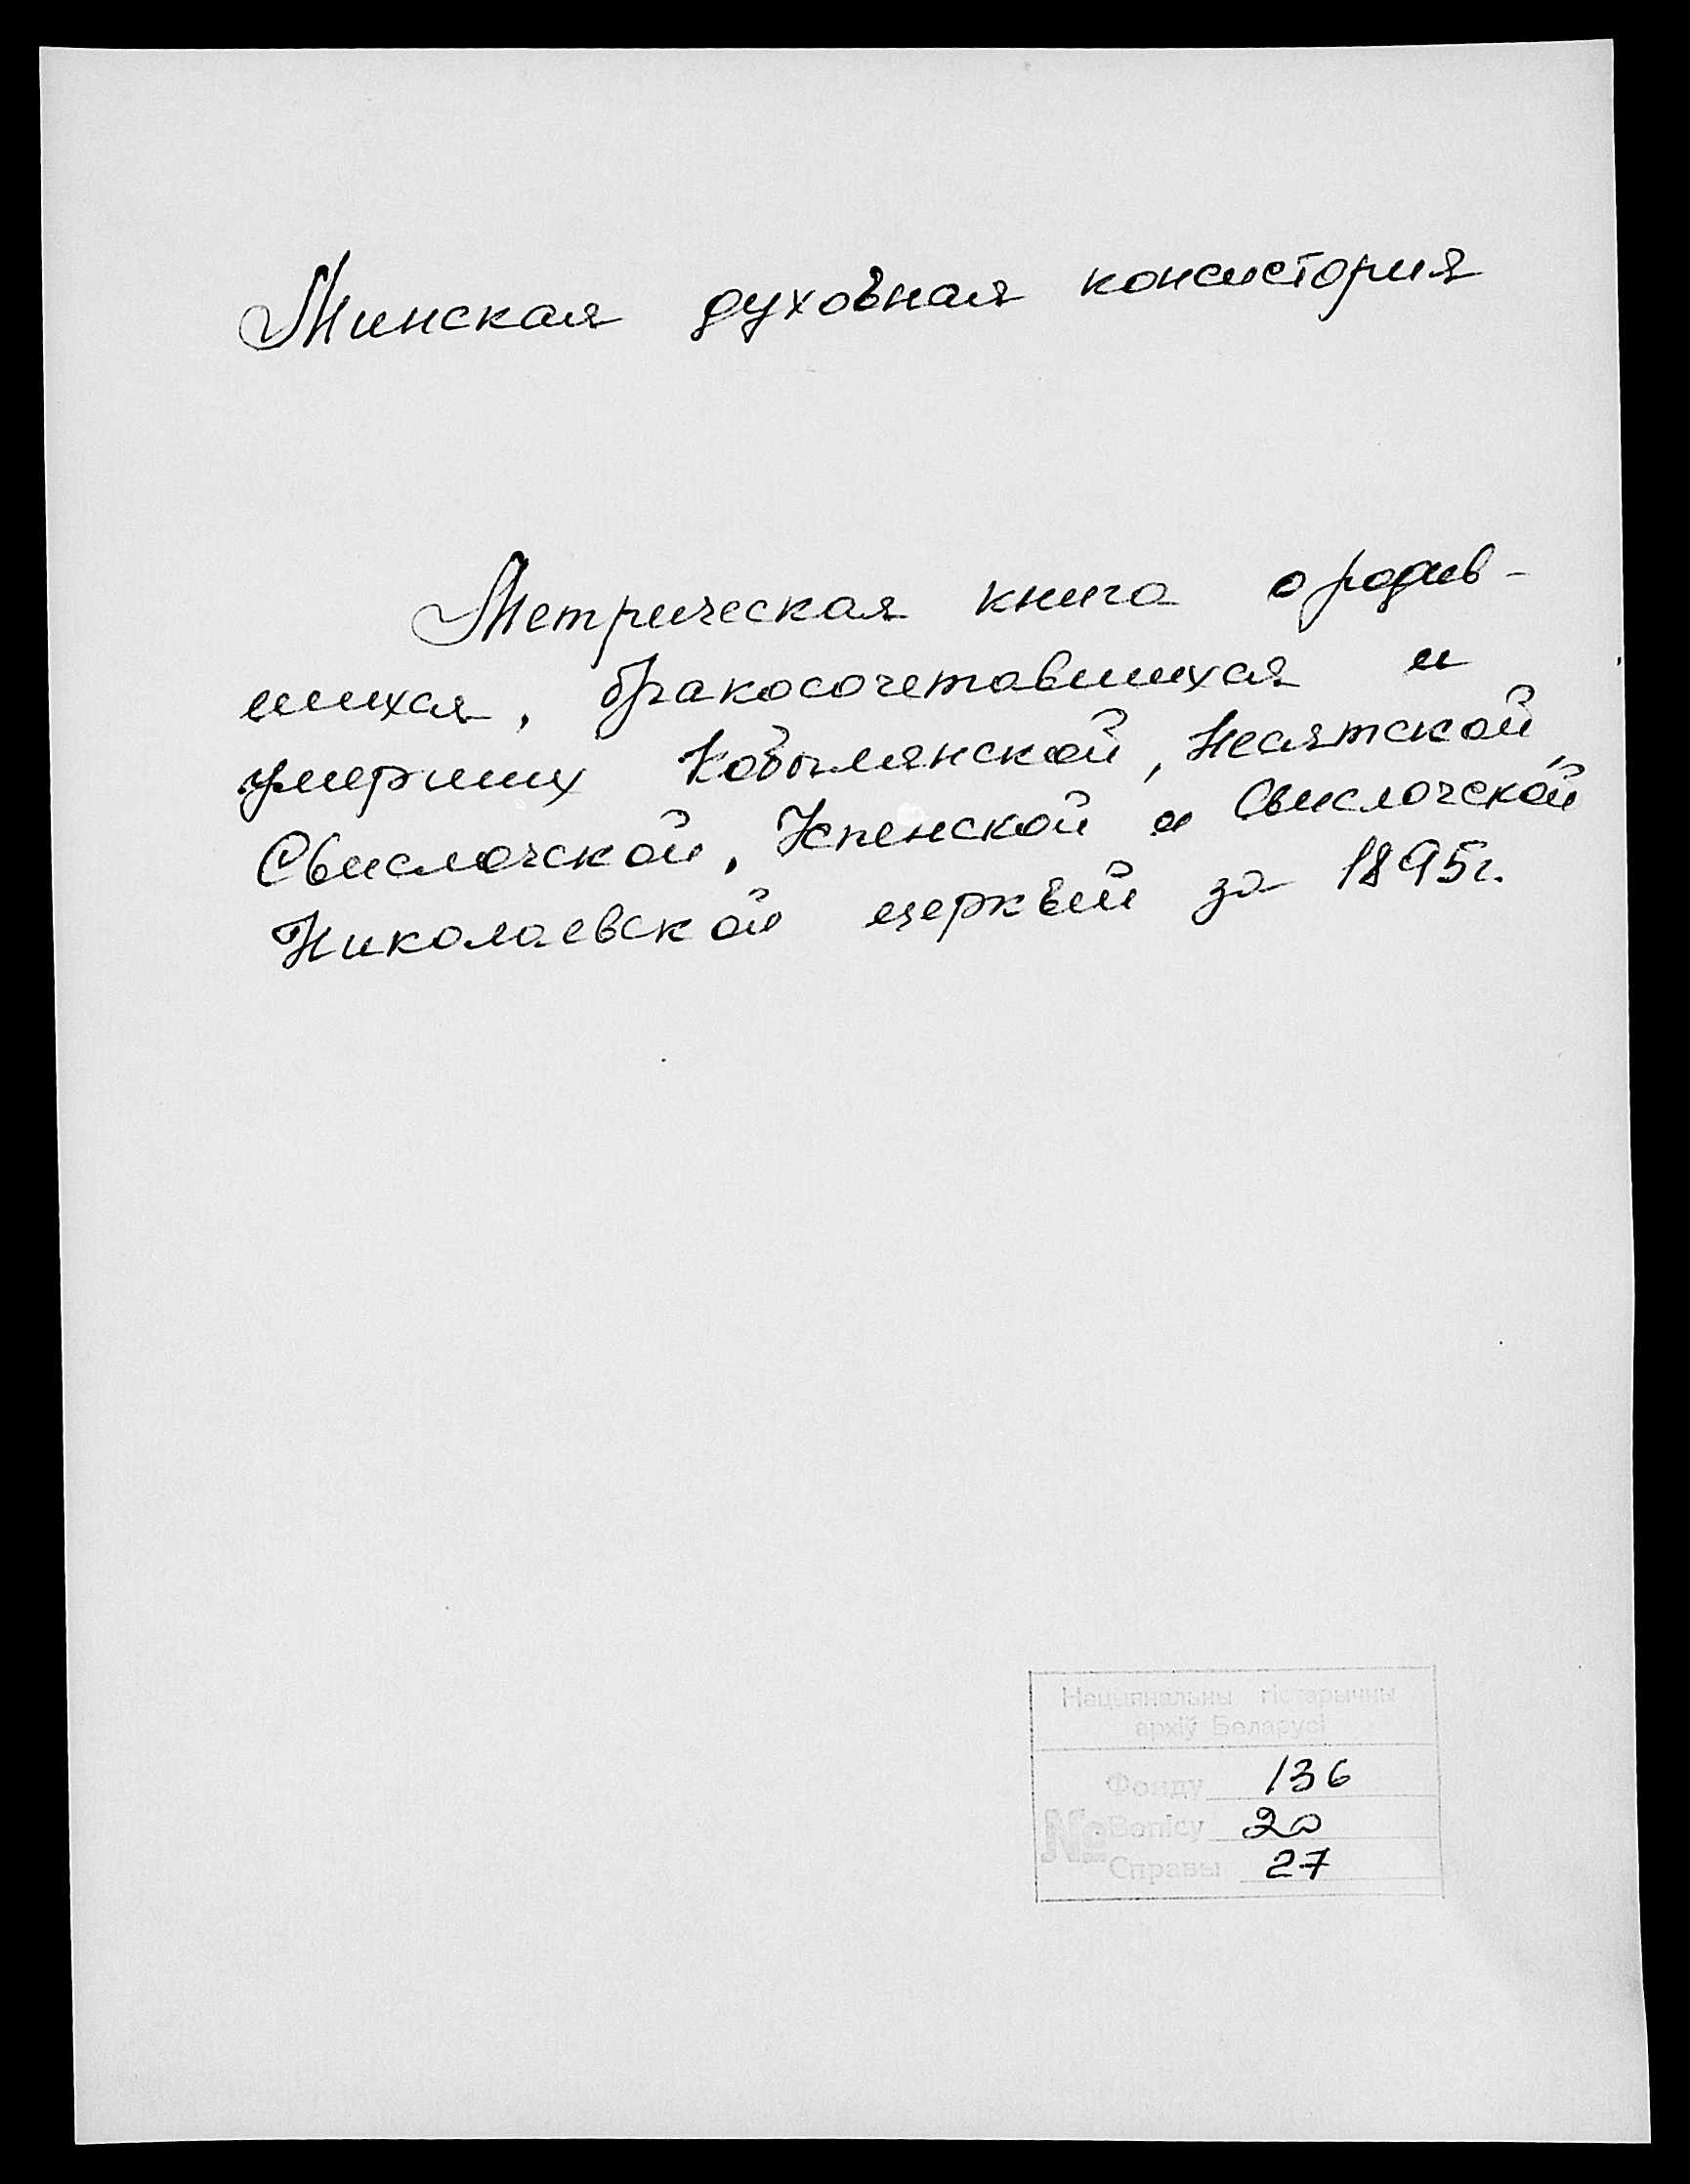 Минская духовная консистория
Метрическая книга о родив-
шихся, бракосочетавшихся и
умерших Кобылянской, Несятской,
Свислочской, Успенской и Свислочской
Николаевской церквей за 1895г.
Нацыянальны гістарычны
архіў Беларусі
Фонду 136
№ Вопісу 20
Справы 27